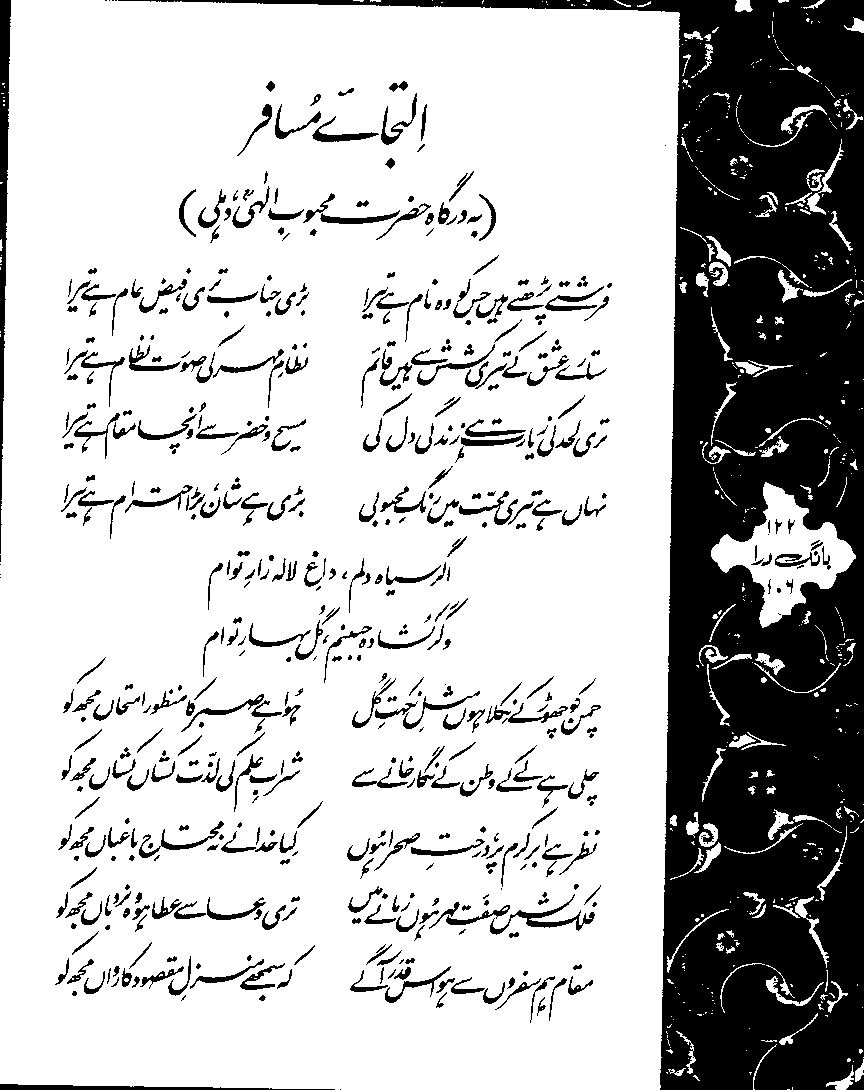 اِلتجائے مُسافر
(بہ درگاہِ حضرت محبوبِ الٰہیؒ، دہلی)
فرشتے پڑھتے ہیں جس کو وہ نام ہے تیرا بڑی جناب تری، فیض عام ہے تیرا
ستارے عشق کے تیری کشش سے ہیں قائم نظامِ مہر کی صورت نظام ہے تیرا
تری لحد کی زیارت ہے زندگی دل کی مسیح و خضر سے اُونچا مقام ہے تیرا
نہاں ہے تیری محبّت میں رنگِ محبوبی بڑی ہے شان، بڑا احترام ہے تیرا
اگر سیاہ دلم، داغِ لالہ زارِ تو ام
وگر کُشادہ جبینم، گُلِ بہارِ تو ام
چمن کو چھوڑ کے نِکلا ہوں مثلِ نکہتِ گُل ہُوا ہے صبر کا منظور امتحاں مجھ کو
چلی ہے لے کے وطن کے نگارخانے سے شرابِ علم کی لذّت کشاں کشاں مجھ کو
نظر ہے ابرِ کرم پر، درختِ صحرا ہُوں کِیا خدا نے نہ محتاجِ باغباں مجھ کو
فلک نشیں صفَتِ مہر ہُوں زمانے میں تری دعا سے عطا ہو وہ نردباں مجھ کو
مقام ہم سفروں سے ہو اس قدَر آگے کہ سمجھے منزلِ مقصود کارواں مجھ کو
۱۲۲
بانگِ درا
۱۰۶